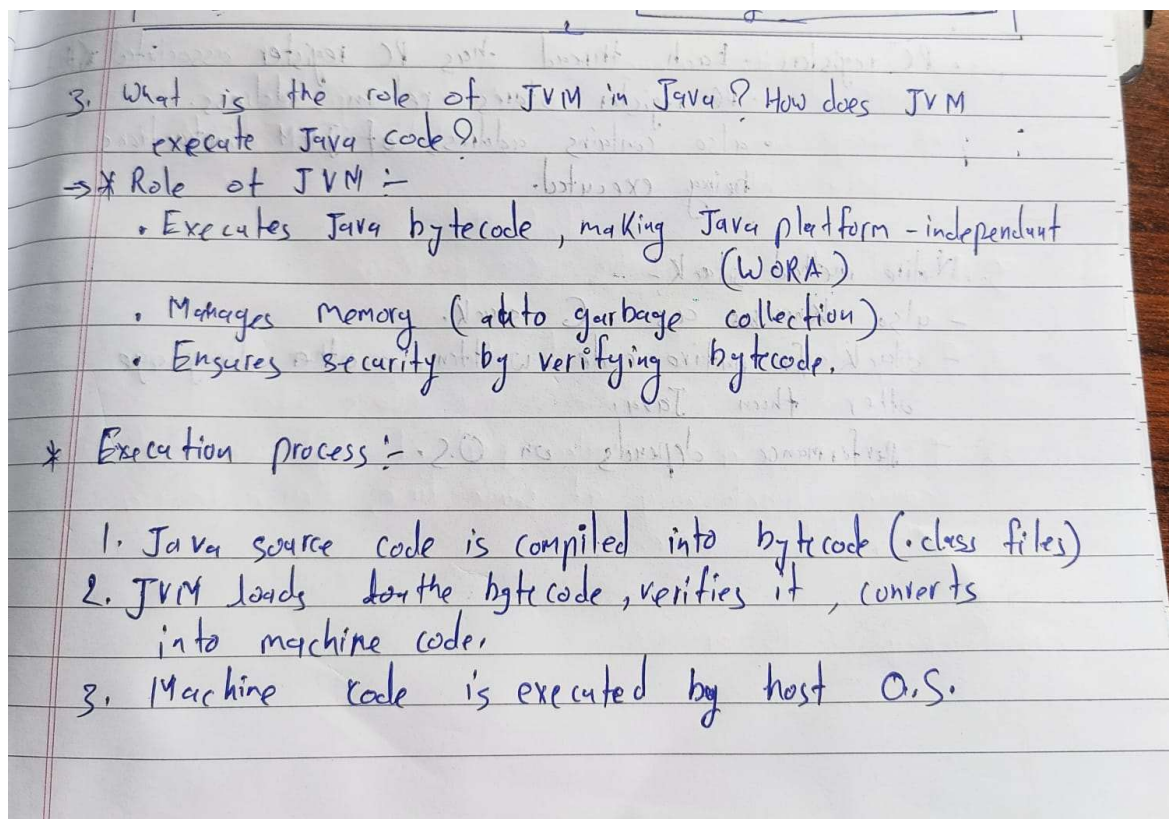 3. What is the role of JVM in Java? How does JVM
execute Java code?
→* Role of JVM :-
• Executes Java bytecode, making Java platform-independant
(WORA)
• Manages memory (auto garbage collection)
• Ensures security by verifying bytecode.
* Execution process :-
1. Java source code is compiled into bytecode (.class files)
2. JVM loads the bytecode, verifies it, converts
into machine code.
3. Machine code is executed by host O.S.